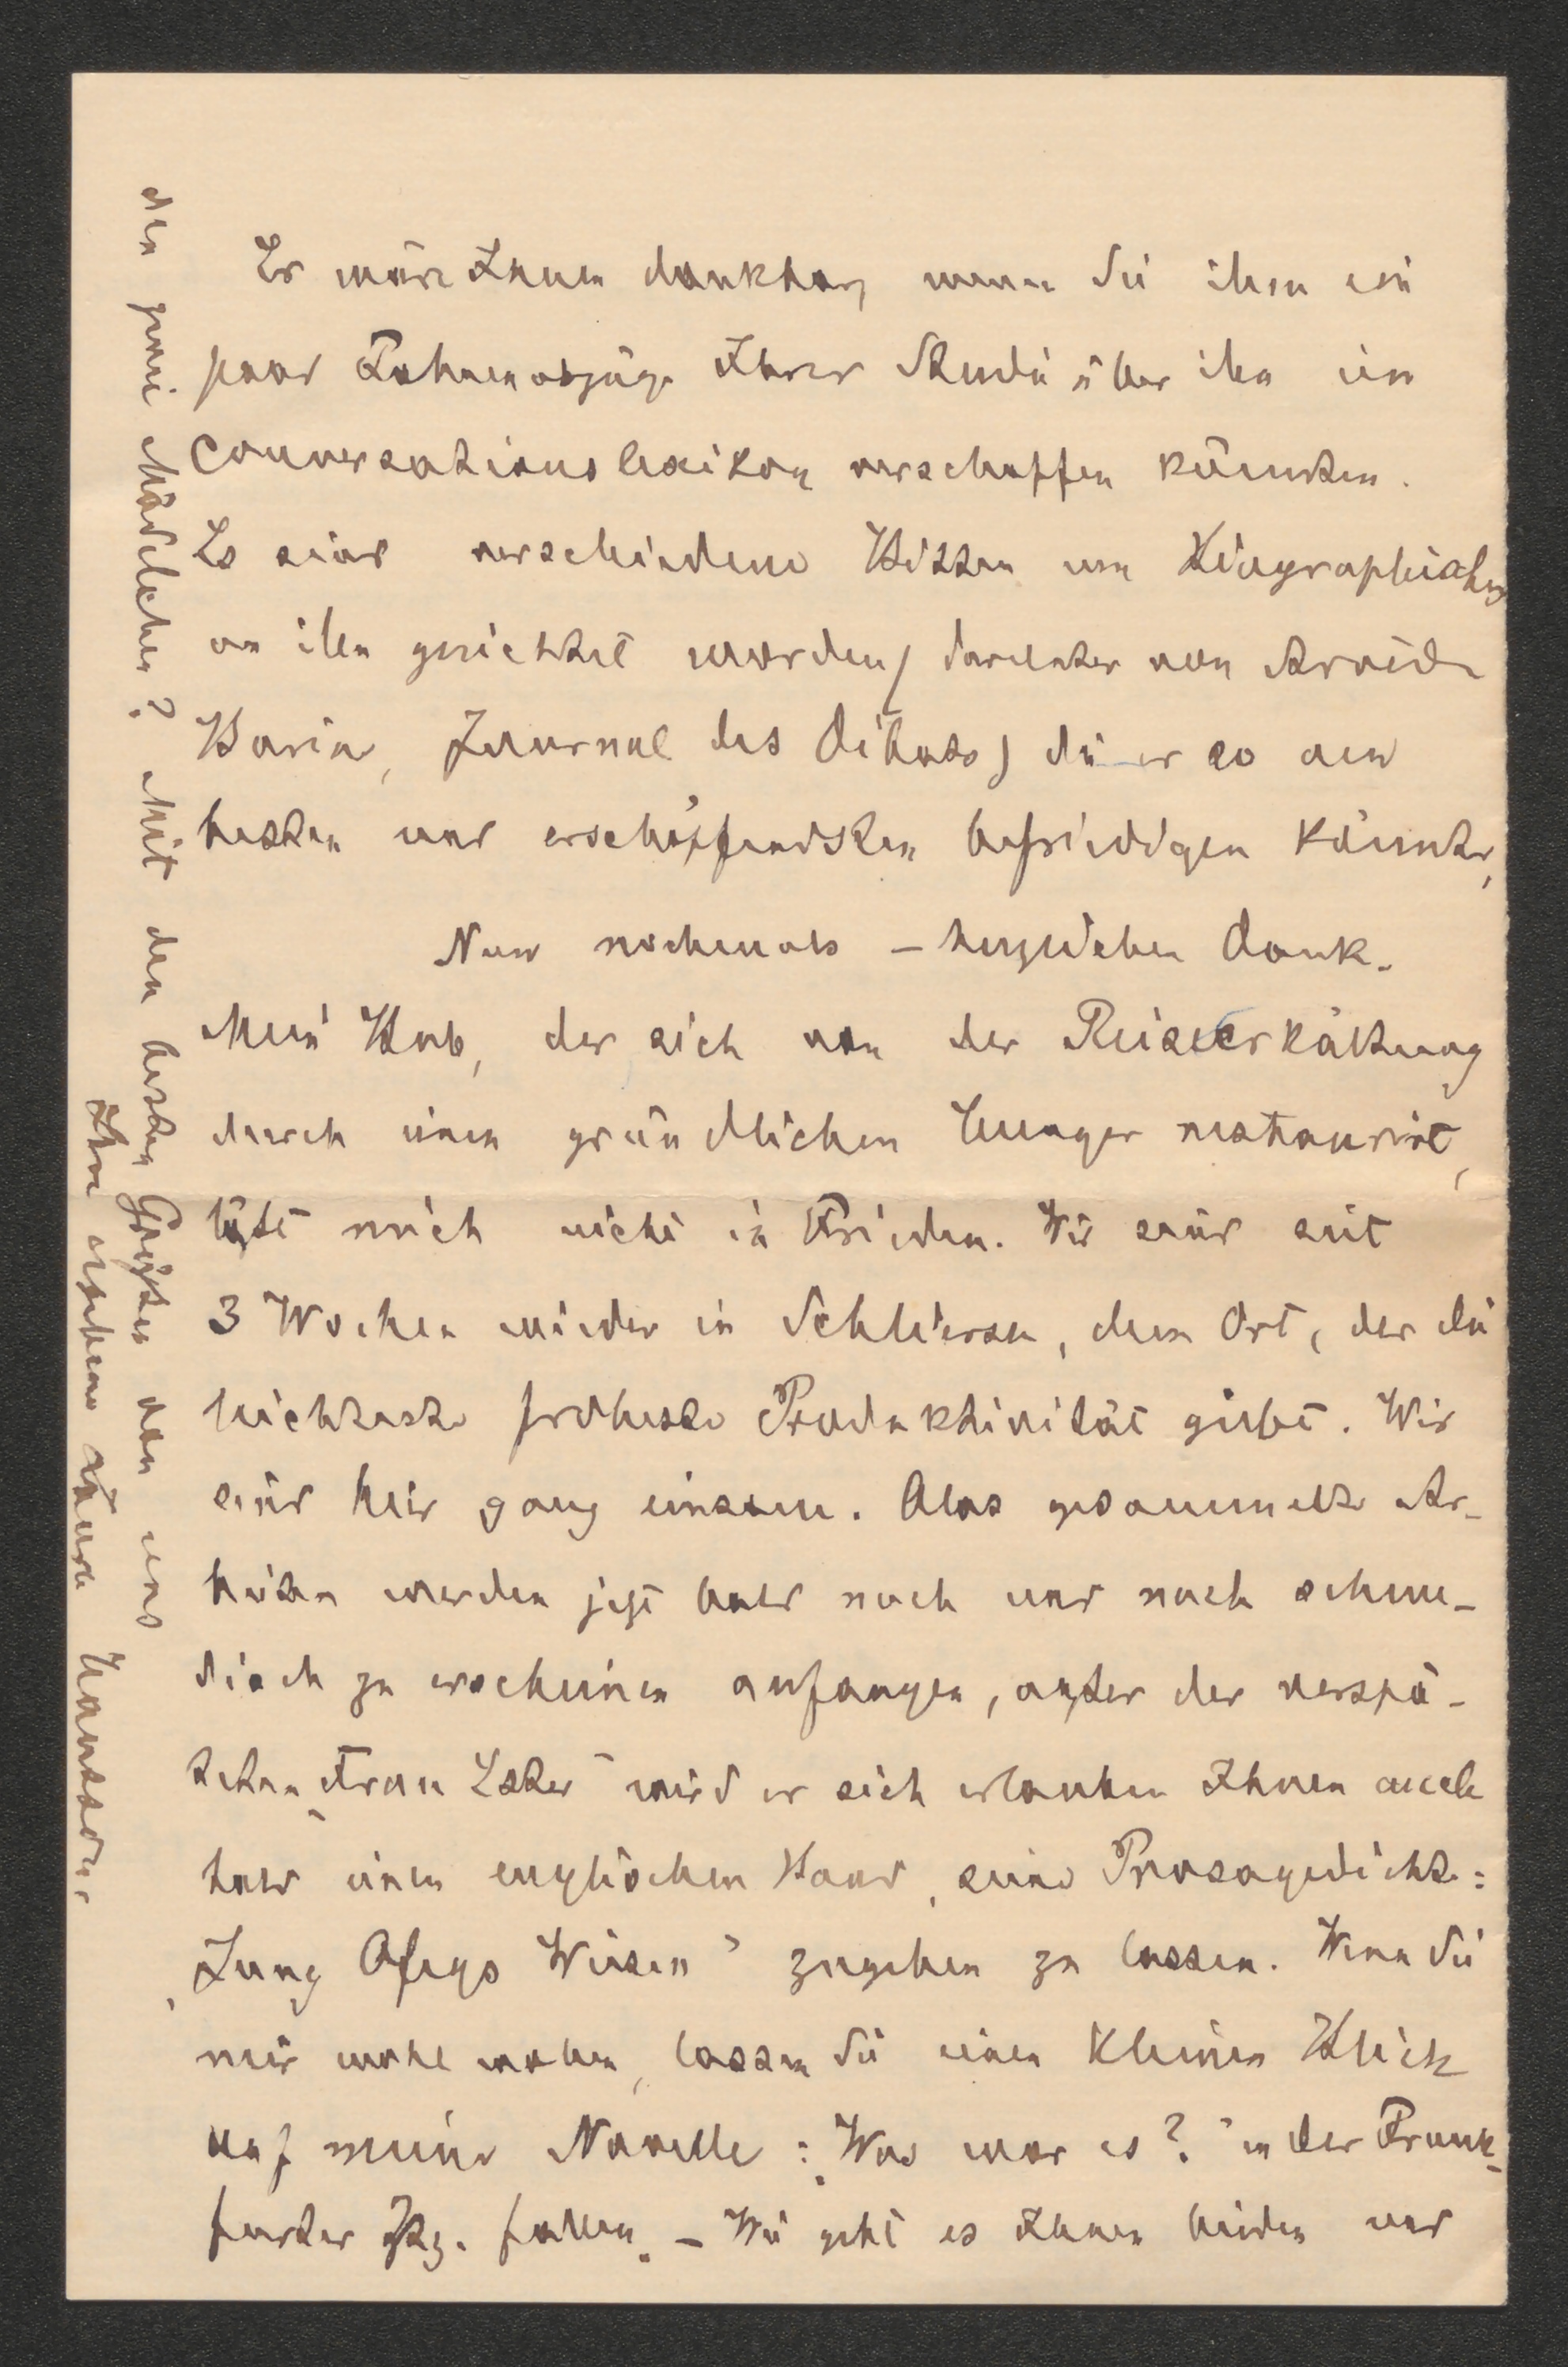 Er wäre Ihnen dankbar, wenn Sie ihm ein
paar Fahnenabzüge Ihrer Studie über ihn im
Conversationslexikon verschaffen könnten.
Es sind verschiedene Bitten um Biographisches
an ihn gerichtet worden, darunter von Arvède
Barine, Journal des Débats, die er so am
besten und erschöpfendsten befriedigen könnte,
Nun nochmals – herzlichen Dank.
Mein Bub, der sich von der Reiseerkältung
durch einen gründlichen Hunger restaurirt,
läßt mich nicht in Frieden. Wir sind seit
3 Wochen wieder in Schliersee, dem Ort, der die
leichteste froheste Produktivität giebt. Wir
sind hier ganz einsam. Olas gesammelte Ar-
beiten werden jetzt bald nach und nach schwe-
disch zu erscheinen anfangen, außer der verspä-
teten „Frau Ester“ wird er sich erlauben Ihnen auch
bald einen englischen Band, seine Prosagedichte:
„Jung Ofegs Weisen“ zugehen zu lassen. Wenn Sie
mir wohl wollen, lassen Sie einen kleinen Blick
auf meine Novelle: „Was war es?“ in der Frank-
furter Ztg. fallen. – Wie geht es Ihnen beiden und
den zwei Mädchen? Mit den besten Grüßen von uns
Ihre ergebene Laura Hansson.